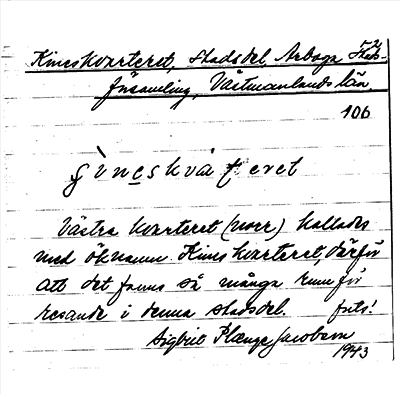 Kineskvarteret, Stadsdel, Arboga Stads-
församling, Västmanlands län
106
Västra kvarteret (norr) kallades
med öknamn Kineskvarteret, därför
att det fanns så många rum för
resande i denna stadsdel. forts!
Sigbrit Plænge Jacobson
1943